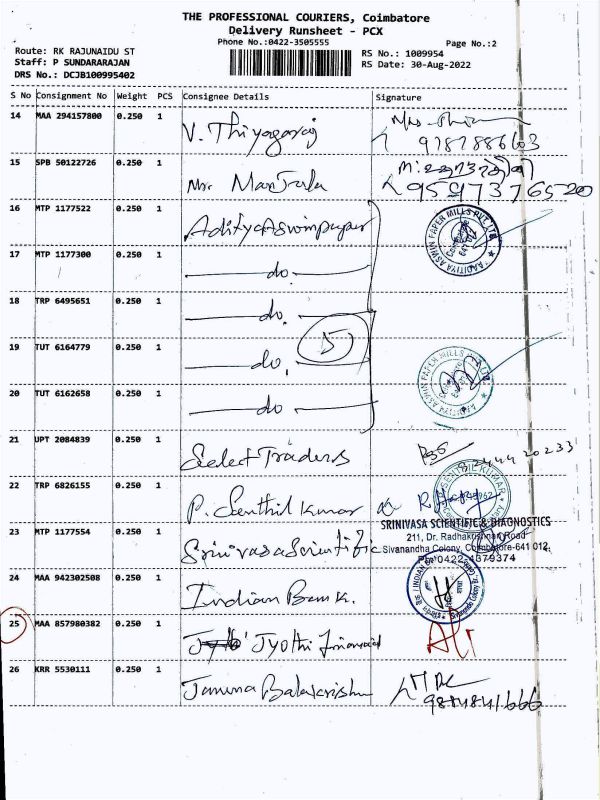 THE PROFESSIONAL COURIERS, Coimbatore
Delivery Runsheet - PCX
Phone No.:0422-3505555
Page No.:2
Route: RK RAJUNAIDU ST
RS No.: 1009954
Staff: P SUNDARARAJAN
RS Date: 30-Aug-2022
DRS No.: DCJB100995402
S No Consignment No Weight PCS Consignee Details Signature
14 MAA 294157800 0.250 1 V. Thiyagaraj
9787886603
15 SPB 50122726 0.250 1 Mrs Manjula
9597376520
16 MTP 1177522 0.250 1 Aditya Aswin paper
17 MTP 1177300 0.250 1 do.
18 TRP 6495651 0.250 1 do.
5
19 TUT 6164779 0.250 1 do.
20 TUT 6162658 0.250 1 do
AADITIYA ASWIN PAPER MILLS PVT LTD
21 UPT 2084839 0.250 1 Select Traders
22 TRP 6826155 0.250 1 P. Senthil Kumar
23 MTP 1177554 0.250 1 Srinivasa Scientific
SRINIVASA SCIENTIFIC & DIAGNOSTICS
211, Dr. Radhakrishnan Road
Sivanandha Colony, Coimbatore-641 012.
24 MAA 942302508 0.250 1 Indian Bank.
25 MAA 857980382 0.250 1 Jyothi Financial
26 KRR 5530111 0.250 1 Jamuna Balakrishn